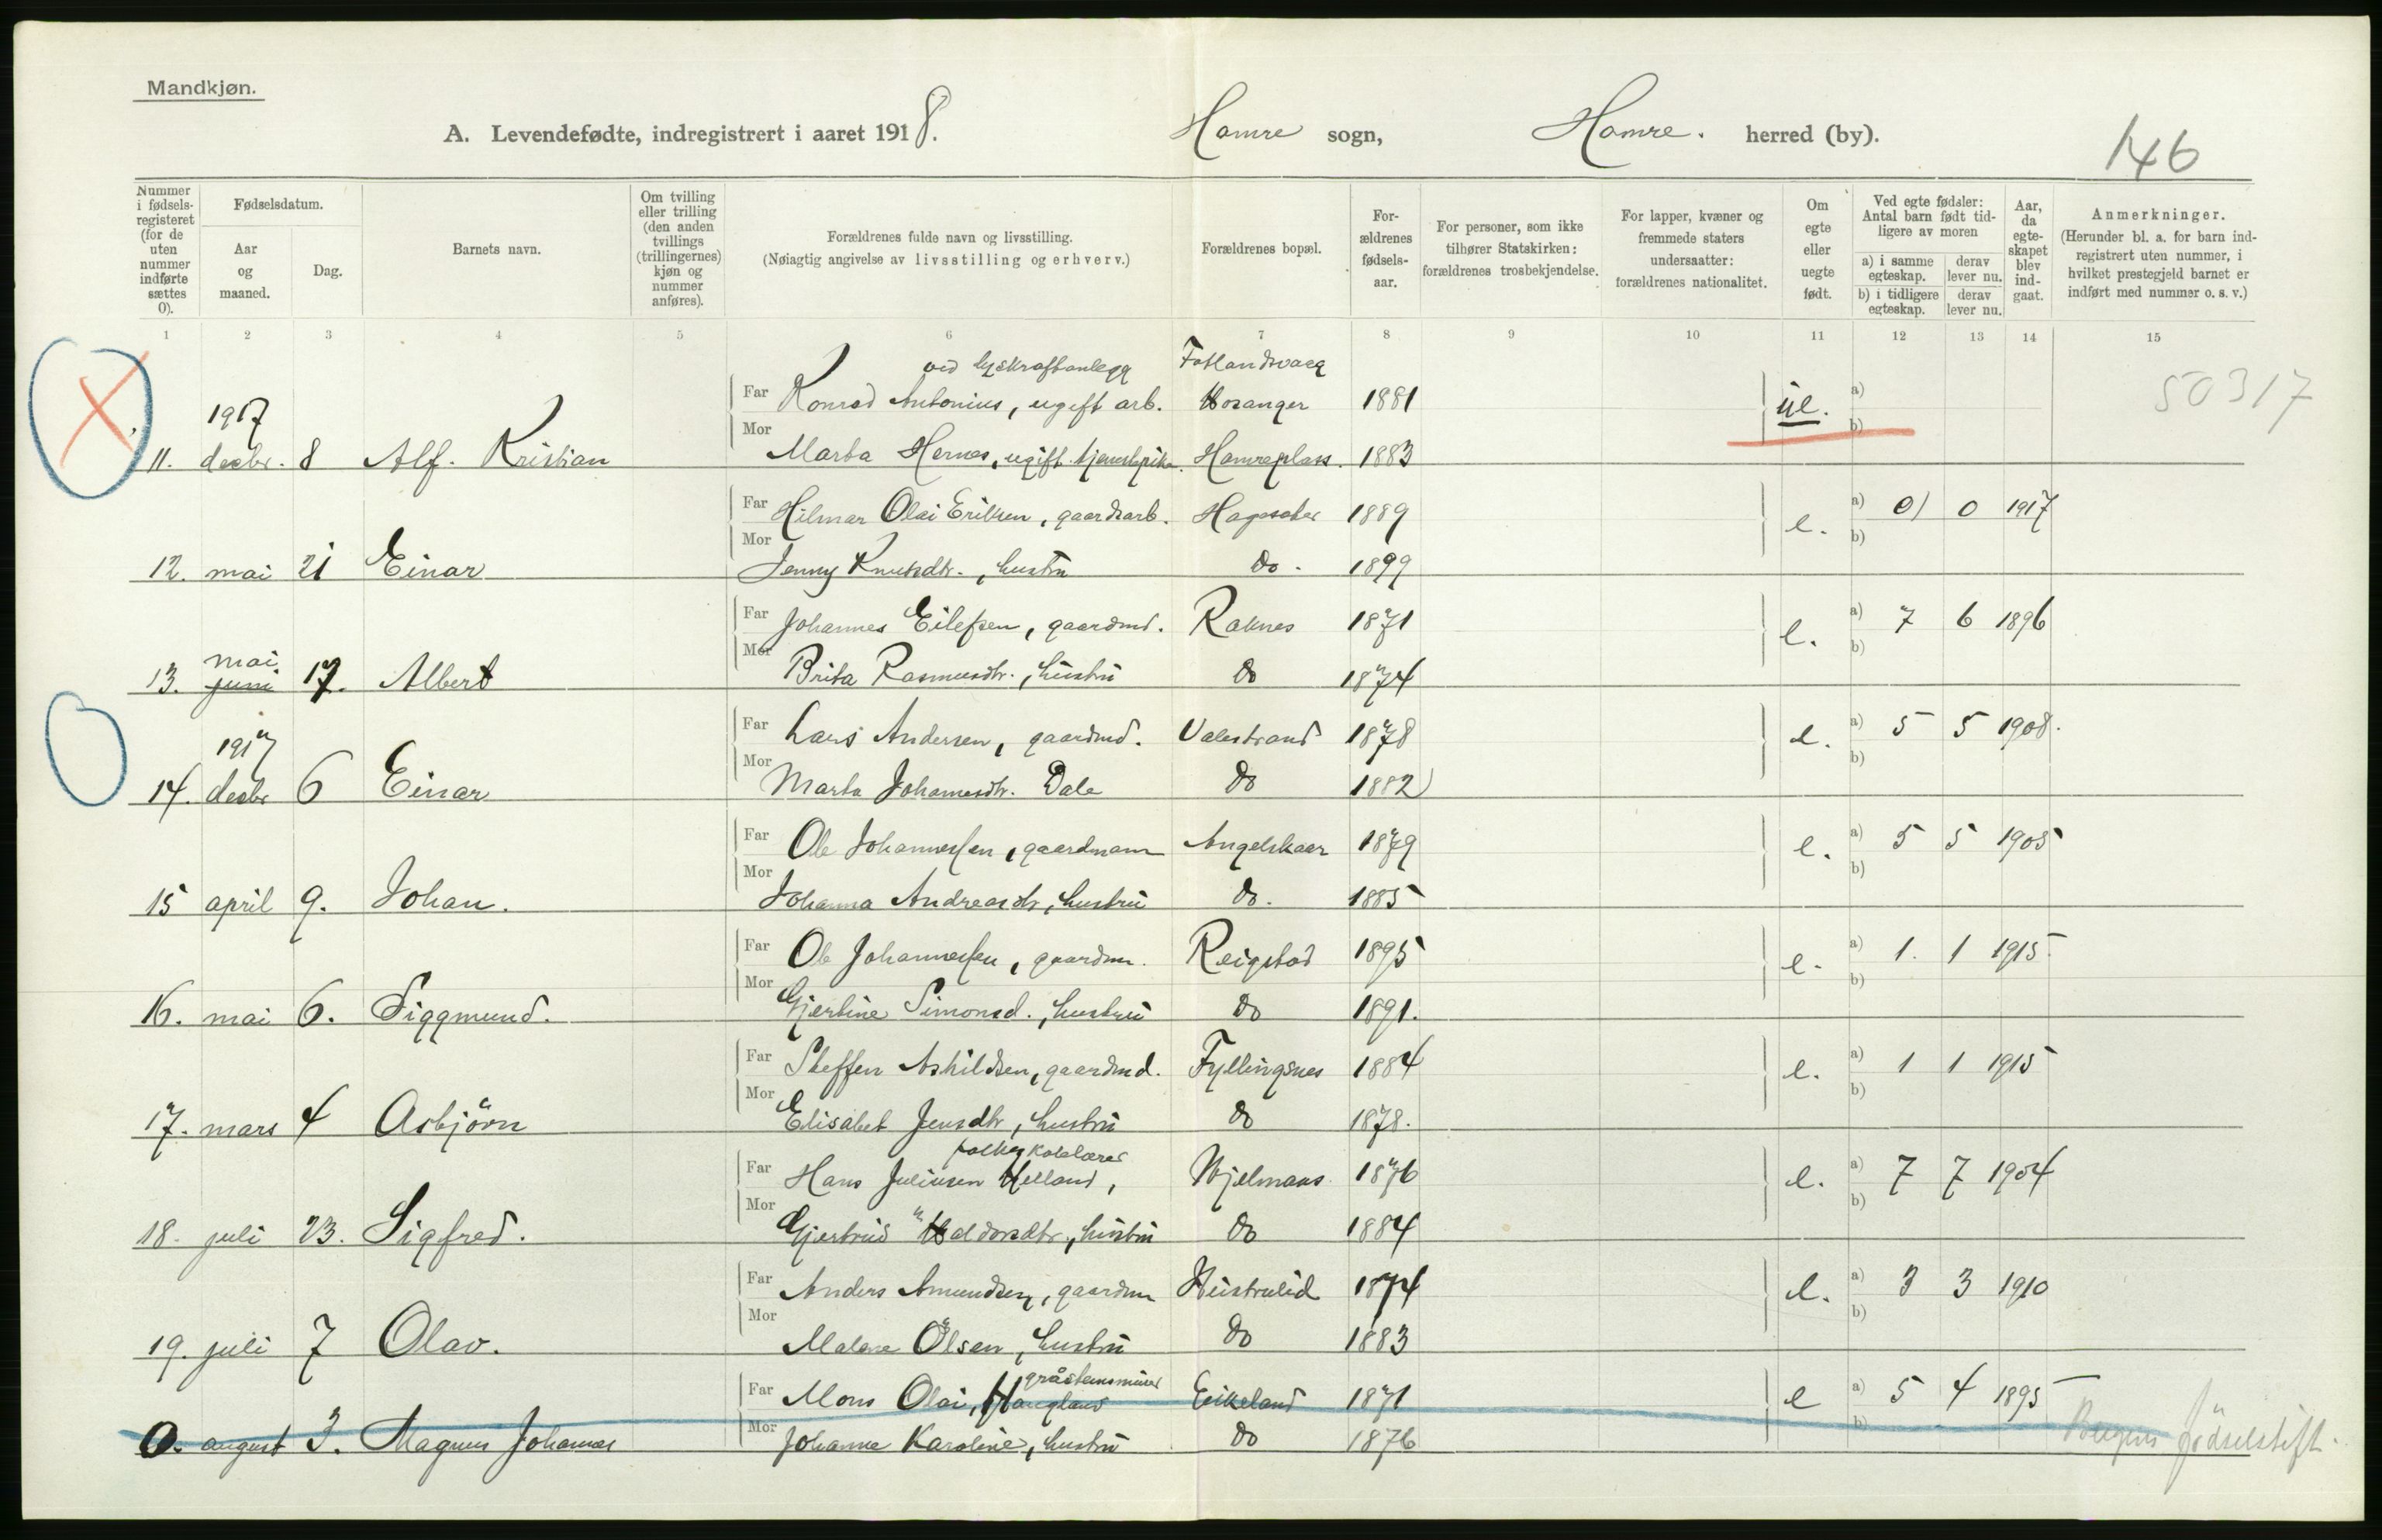 Mandkjøn.
A. Levendefødte, indregistrert i aaret 1918. Hamre sogn, Hamre. herred (by).
146
Nummer i fødselsregisteret (for de uten nummer indførte sættes 0).
Fødselsdatum.
Aar og maaned.
Dag.
Barnets navn.
Om tvilling eller trilling (den anden tvillings (trillingernes) kjøn og nummer anføres).
Forældrenes fulde navn og livsstilling.
(Nøiagtig angivelse av livsstilling og erhverv.)
Forældrenes bopæl.
Forældrenes fødselsaar.
For personer, som ikke tilhører Statskirken: forældrenes trosbekjendelse.
For lapper, kvæner og fremmede staters undersaatter: forældrenes nationalitet.
Om egte eller uegte født.
Ved egte fødsler: Antal barn født tidligere av moren
a) i samme egteskap.
derav lever nu.
b) i tidligere egteskap.
derav lever nu.
Aar, da egteskapet blev indgaat.
Anmerkninger.
(Herunder bl. a. for barn indregistrert uten nummer, i hvilket prestegjeld barnet er indført med nummer o. s. v.)
1 2 3 4 5 6 7 8 9 10 11 12 13 14 15
ved lyskraftanlegg Fotlandsvaag
Far Konrad Antonius, ugift arb. Hosanger 1881 ue. a) 50317
1917
Mor b)
11. decbr. 8 Alf. Kristian Marta Hernes, ugift Hamreplass. 1883
Far Hilmar Olai Eriksen, gaardsarb. 1889 e. a) 0) 0 1917
Mor b)
12. mai 21 Einar Jenny Knutsdtr., hustru do. 1899
Far Johannes Eilefsen, gaardmd. Raknes 1871 e. a) 7 6 1896
mai Mor b)
13. juni 17. Albert Brita Rasmusdtr., hustru do 1874
Far Lars Andersen, gaardmd. Valestrand 1878 e. a) 5 5 1908.
1917 Mor b)
14. decbr 6 Einar Marta Johannesdtr. Dale do 1882
Far Ole Johannessen, gaardmann Angelskaar 1879 e. a) 5 5 1905
Mor b)
15 april 9. Johan. Johanna Andreasdtr, hustru do. 1885
Far Ole Johannessen, gaardm. Reigstad 1895 e. a) 1. 1 1915.
Mor b)
16. mai 6. Siggmund. Gjertine Simonsd., hustru do 1891.
Far Steffen Askildsen, gaardmd. Fyllingsnes 1884 e. a) 1 1 1915
Mor b)
17. mars 4 Asbjörn Elisabet Jensdtr, hustru do 1878.
folkeskolelærer
Far Hans Juliusen Helland, Hjelmaas 1876 e. a) 7 7 1904
Mor b)
18. juli 23. Sigfred. Gjertrud Haldorsdtr., hustru do 1884
Far Anders Amundsen, gaardm 1874 e. a) 3 3 1910
Mor b)
19. juli 7 Olav. Malene Olsen, hustru do 1883
gråstensmurer
Far Mons Olai, Haugland Eikeland 1871 e a) 5 4 1895
Mor b)
0. august 3. Magnus Johannes Johanne Karoline, hustru do 1876 Bergens födselstift.